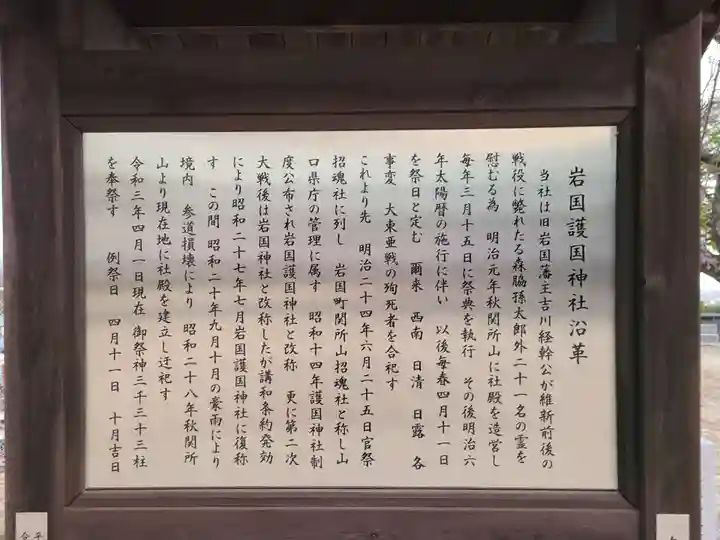 岩国護国神社沿革
当社は旧岩国藩主吉川経幹公が維新前後の
戦役に斃れたる森脇孫太郎外二十一名の霊を
慰むる為 明治元年秋関所山に社殿を造営し
毎年三月十五日に祭典を執行 その後明治六
年太陽暦の施行に伴い 以後毎春四月十一日
を祭日と定む 爾来 西南 日清 日露 各
事変 大東亜戦の殉死者を合祀す
これより先 明治二十四年六月二十五日官祭
招魂社に列し 岩国町関所山招魂社と称し山
口県庁の管理に属す 昭和十四年護国神社制
度公布され岩国護国神社と改称 更に第二次
大戦後は岩国神社と改称したが講和条約発効
により昭和二十七年七月岩国護国神社に復称
す この間 昭和二十年九月十月の豪雨により
境内 参道損壊により 昭和二十八年秋関所
山より現在地に社殿を建立し迁祀す
令和三年四月一日現在 御祭神三千三十三柱
を奉祭す 例祭日 四月十一日 十月吉日